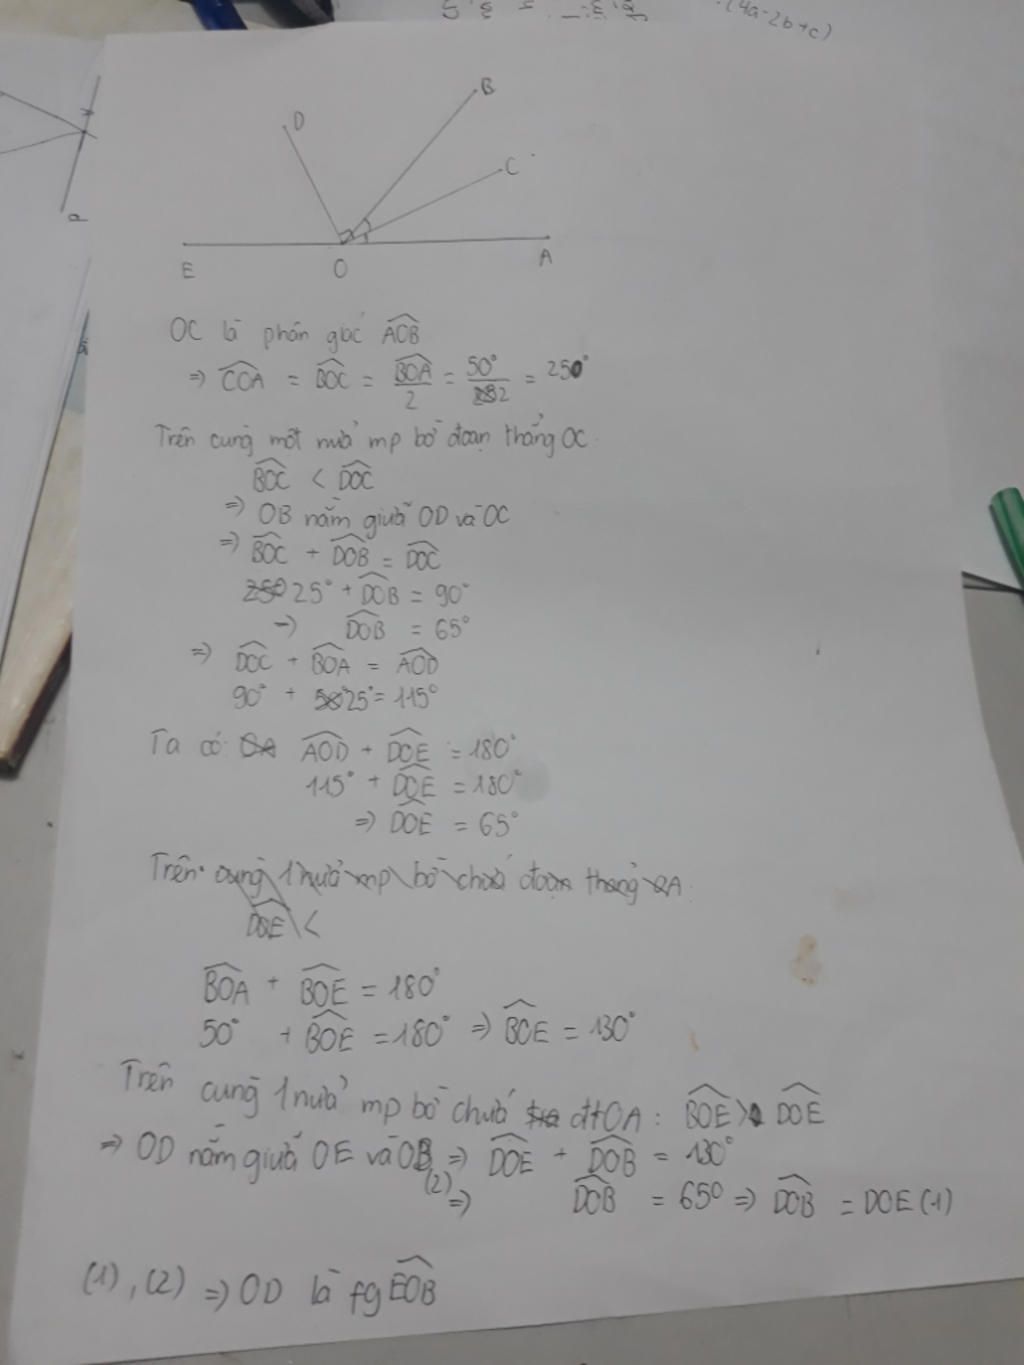 (4a-2b+c)
B
D
C
P
E
O
A
OC là phân giác AOB
=> COA = BOC = BOA/2 = 50°/2 = 250°
Trên cùng một nửa mp bờ đoạn thẳng OC.
BOC < DOC
=> OB nằm giữa OD và OC
=> BOC + DOB = DOC
25° + DOB = 90°
=> DOB = 65°
=> DOC + BOA = AOD
90° + 25° = 115°
Ta có: AOD + DOE = 180°
115° + DOE = 180°
=> DOE = 65°
Trên cùng 1 nửa mp bờ chứa đoạn thẳng OA.
DOE <
BOA + BOE = 180°
50° + BOE = 180° => BOE = 130°
Trên cùng 1 nửa mp bờ chứa đt OA: BOE > DOE
=> OD nằm giữa OE và OB (2) => DOE + DOB = 130°
=> DOB = 65° => DOB = DOE (1)
(1), (2) => OD là fg EOB